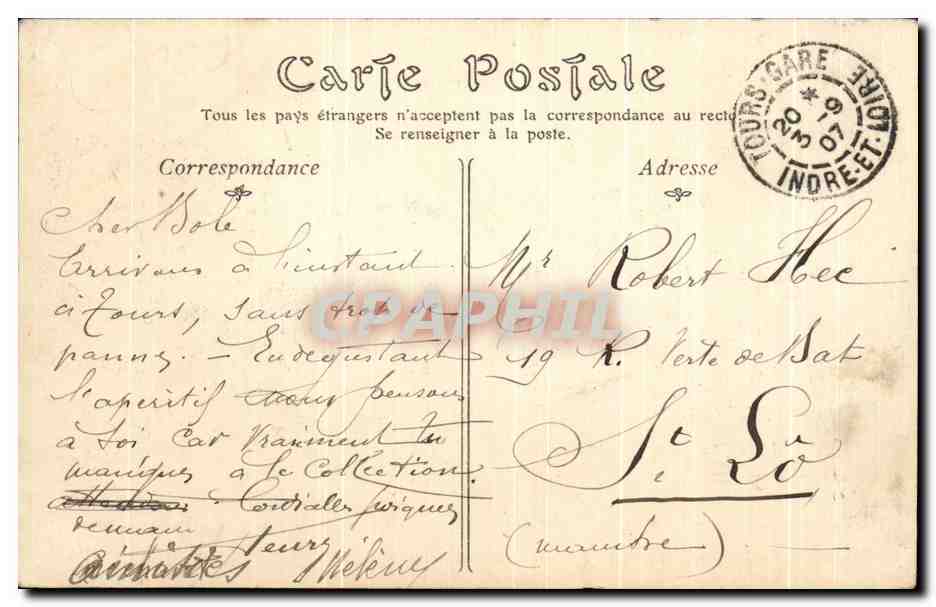 Carte Postale
Tous les pays étrangers n'acceptent pas la correspondance au recto
Se renseigner à la poste.
TOURS-GARE
20 *
3 - 9
07
INDRE-ET-LOIRE
Correspondance
Adresse
Cher Bob
Arrivons à l'instant
à Tours, sans trop de
pannes. - En dégustant
l'apéritif nous pensons
à toi car vraiment tu
manques à la Collection
Cordialles
demain
Hélène
Mr Robert Hec
19 R. Verte de Bat
St Lo
(manche)
CPAPHIL